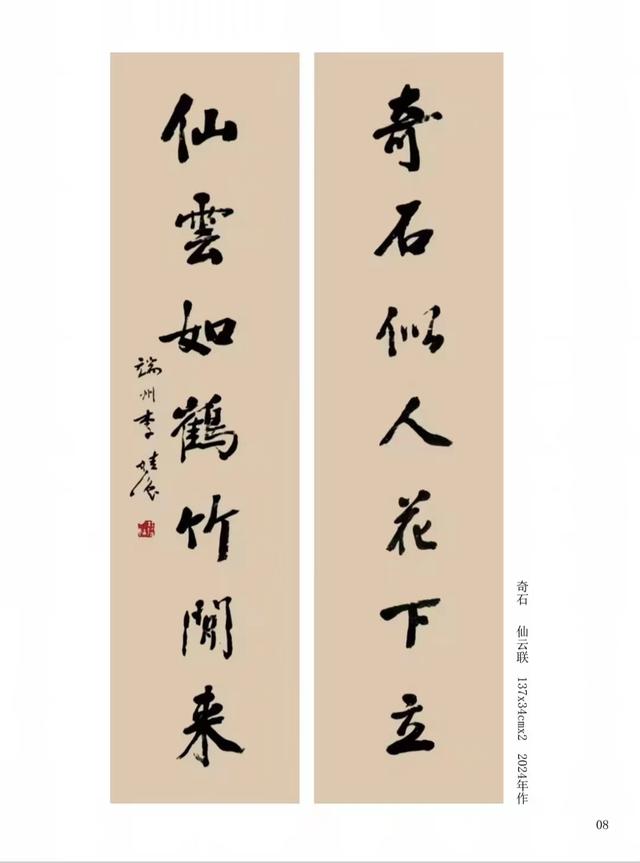 奇石似人花下立
仙雲如鶴竹間来
端州李
奇石 仙云联 137x34cmx2 2024年作
08